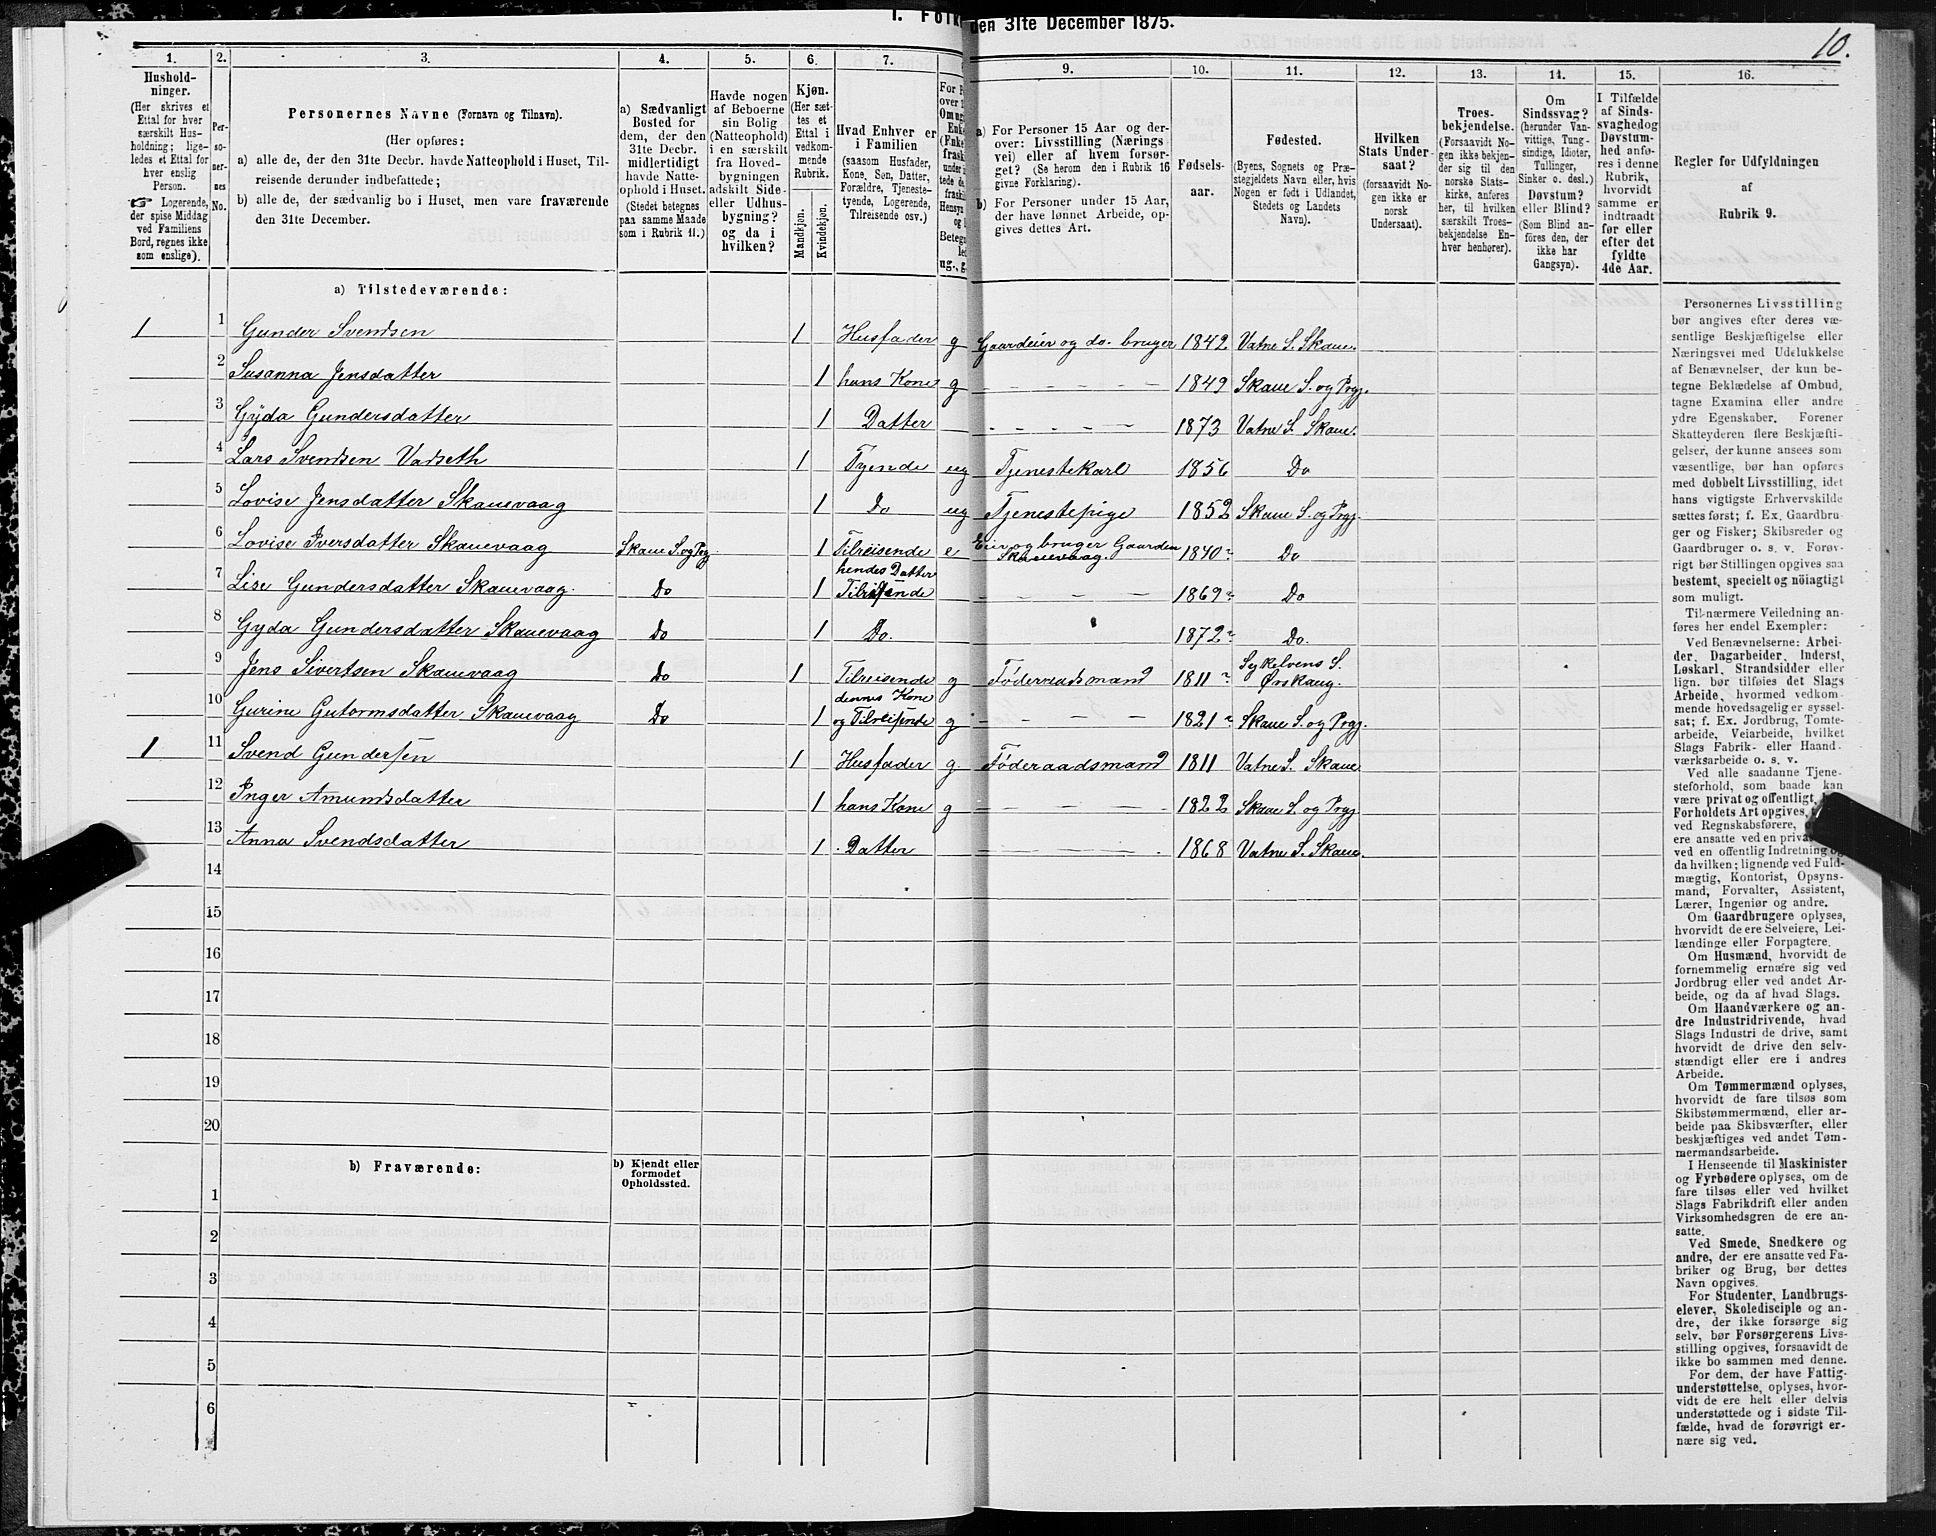 I. Folk
den 31te December 1875.
10.
1. 2. 3. 4. 5. 6. 7. 9. 10. 11. 12. 13. 14. 15. 16.
Hushold-
ninger.
(Her skrives et
Ettal for hver
særskilt Hus-
holdning; lige-
ledes et Ettal for
hver enslig
Person.
☞ Logerende,
der spise Middag
ved Familiens
Bord, regnes ikke
som enslige).
Per-
so-
ner-
nes
No.
Personernes Navne (Fornavn og Tilnavn).
(Her opføres:
a) alle de, der den 31te Decbr. havde Natteophold i Huset, Til-
reisende derunder indbefattede;
b) alle de, der sædvanlig bo i Huset, men vare fraværende
den 31te December.
a) Sædvanligt
Bosted for
dem, der den
31te Decbr.
midlertidigt
havde Natte-
ophold i Huset.
(Stedet betegnes
paa samme Maade
som i Rubrik 11.)
Havde nogen
af Beboerne
sin Bolig
(Natteophold)
i en særskilt
fra Hoved-
bygningen
adskilt Side-
eller Udhus-
bygning?
og da i
hvilken?
Kjøn.
(Her sæt-
tes et
Ettal i
vedkom-
mende
Rubrik.
Mandkjøn.
Kvindekjøn.
Hvad Enhver er
i Familien
(saasom Husfader,
Kone, Søn, Datter,
Forældre, Tjeneste-
tyende, Logerende,
Tilreisende osv.)
a) For Personer 15 Aar og der-
over: Livsstilling (Nærings
vei) eller af hvem forsør-
get? (Se herom den i Rubrik 16
givne Forklaring).
b) For Personer under 15 Aar,
der have lønnet Arbeide, op-
gives dettes Art.
Fødsels-
aar.
Fødested.
(Byens, Sognets og Præ-
stegjeldets Navn eller, hvis
Nogen er født i Udlandet,
Stedets og Landets
Navn).
Hvilken
Stats Under-
saat?
(forsaavidt No-
gen ikke er
norsk
Undersaat).
Troes-
bekjendelse.
(Forsaavidt No-
gen ikke bekjen-
der sig til den
norske Stats-
kirke, anføres
her, til hvilken
særskilt Troes-
bekjendelse En-
hver henhører).
Om
Sindssvag?
(herunder Van-
vittige, Tung-
sindige, Idioter,
Tullinger,
Sinker o. desl.)
Døvstum?
eller Blind?
(Som Blind an-
føres den, der
ikke har
Gangsyn).
I Tilfælde
af Sinds-
svaghed og
Døvstum-
hed anfø-
res i denne
Rubrik,
hvorvidt
samme er
indtraadt
før eller
efter det
fyldte
4de Aar.
Regler for Udfyldningen
af
Rubrik 9.
a) Tilstedeværende:
1 1 Gunder Svendsen 1 Husfader g Gaardeier og do. bruger 1842 Vatne S. Skaue.
2 Susanna Jensdatter 1 hans Kone g – – – – – 1849 Skaue S. og Prgj.
3 Gyda Gundersdatter 1 Datter – – – – 1873 Vatne S. Skaue.
4 Lars Svendsen Vadseth 1 Tyende ug Tjenestekarl 1856 Do
5 Lovise Jensdatter Skauevaag 1 Do ug Tjenestepige 1852 Skaue S. og Prgj.
6 Lovise Iversdatter Skauevaag Skaue S. og Prg. 1 Tilreisende e Eier og bruger Gaarden Skauevaag. 1840 Do
7 Lise Gundersdatter Skauevaag. Do 1 hendes Datter Tilreisende – – – – 1869 Do
8 Gyda Gundersdatter Skauevaag Do 1 Do. 1872 Do.
9 Jens Sivertsen Skauevaag Do 1 Tilreisende g Føderaadsmand 1811 Sykelvens S. Ørskaug.
10 Gurine Gutormsdatter Skauevaag Do 1 dennes Kone og Tilreisende g – – – – 1821 Skaue S. og Prgj.
1 11 Svend Gundersen 1 Husfader g Føderaadsmand 1811 Vatne S. Skaue
12 Inger Amundsdatter 1 hans Kone g – – – – 1822 Skaue S. og Prgj.
13 Anna Svendsdatter 1 Datter – – – – 1868 Vatne S. Skaue.
14
15
16
17
18
19
20
b) Fraværende:
b) Kjendt eller
formodet
Opholdssted.
1
2
3
4
5
6
Personernes Livsstilling
bør angives efter deres væ-
sentlige Beskjæftigelse eller
Næringsvei med Udelukkelse
af Benævnelser, der kun be-
tegne Beklædelse af Ombud,
tagne Examina eller andre
ydre Egenskaber. Forener
Skatteyderen flere Beskjæfti-
gelser, der kunne ansees som
væsentlige, bør han opføres
med dobbelt Livsstilling, idet
hans vigtigste Erhvervskilde
sættes først; f. Ex. Gaardbru-
ger og Fisker; Skibsreder og
Gaardbruger o. s. v. Forøv-
rigt bør Stillingen opgives saa
bestemt, specielt og nöiagtigt
som muligt.
Til nærmere Veiledning an-
føres her endel Exempler:
Ved Benævnelserne: Arbei-
der, Dagarbeider, Inderst,
Løskarl, Strandsidder eller
lign. bør tilføies det Slags
Arbeide, hvormed vedkom-
mende hovedsagelig er syssel-
sat; f. Ex. Jordbrug, Tomte-
arbeide, Veiarbeide, hvilket
Slags Fabrik- eller Haand-
værksarbeide o. s. v.
Ved alle saadanne Tjene-
steforhold, som baade kan
være privat og offentligt,
Forholdets Art opgives,
ved Regnskabsførere,
ere ansatte ved en
ved en offentlig Indretning og
da hvilken; lignende ved Fuld-
mægtig, Kontorist, Opsyns-
mand, Forvalter, Assistent,
Lærer, Ingeniør og andre.
Om Gaardbrugere oplyses,
hvorvidt de ere Selveiere, Lei-
lændinge eller Forpagtere.
Om Husmænd, hvorvidt de
fornemmelig ernære sig ved
Jordbrug eller ved andet Ar-
beide, og da af hvad Slags.
Om Haandværkere og an-
dre Industridrivende, hvad
Slags Industri de drive, samt
hvorvidt de drive den selv-
stændigt eller ere i andres
Arbeide.
Om Tømmermænd oplyses,
hvorvidt de fare tilsøs som
Skibstømmermænd, eller ar-
beide paa Skibsværfter, eller
beskjæftiges ved andet Tøm-
mermandsarbeide.
I Henseende til Maskinister
og Fyrbødere oplyses, om de
fare tilsøs eller ved hvilket
Slags Fabrikdrift eller anden
Virksomhedsgren de ere an-
satte.
Ved Smede, Snedkere og
andre, der ere ansatte ved Fa-
briker og Brug, bør dettes
Navn opgives.
For Studenter, Landbrugs-
elever, Skoledisciple og an-
dre, der ikke forsørge sig
selv, bør Forsørgerens Livs-
stilling opgives, forsaavidt de
ikke bo sammen med denne.
For dem, der have Fattig-
understøttelse, oplyses, hvor-
vidt de ere helt eller delvis
understøttede og i sidste Til-
fælde, hvad de forøvrigt er-
nære sig ved.